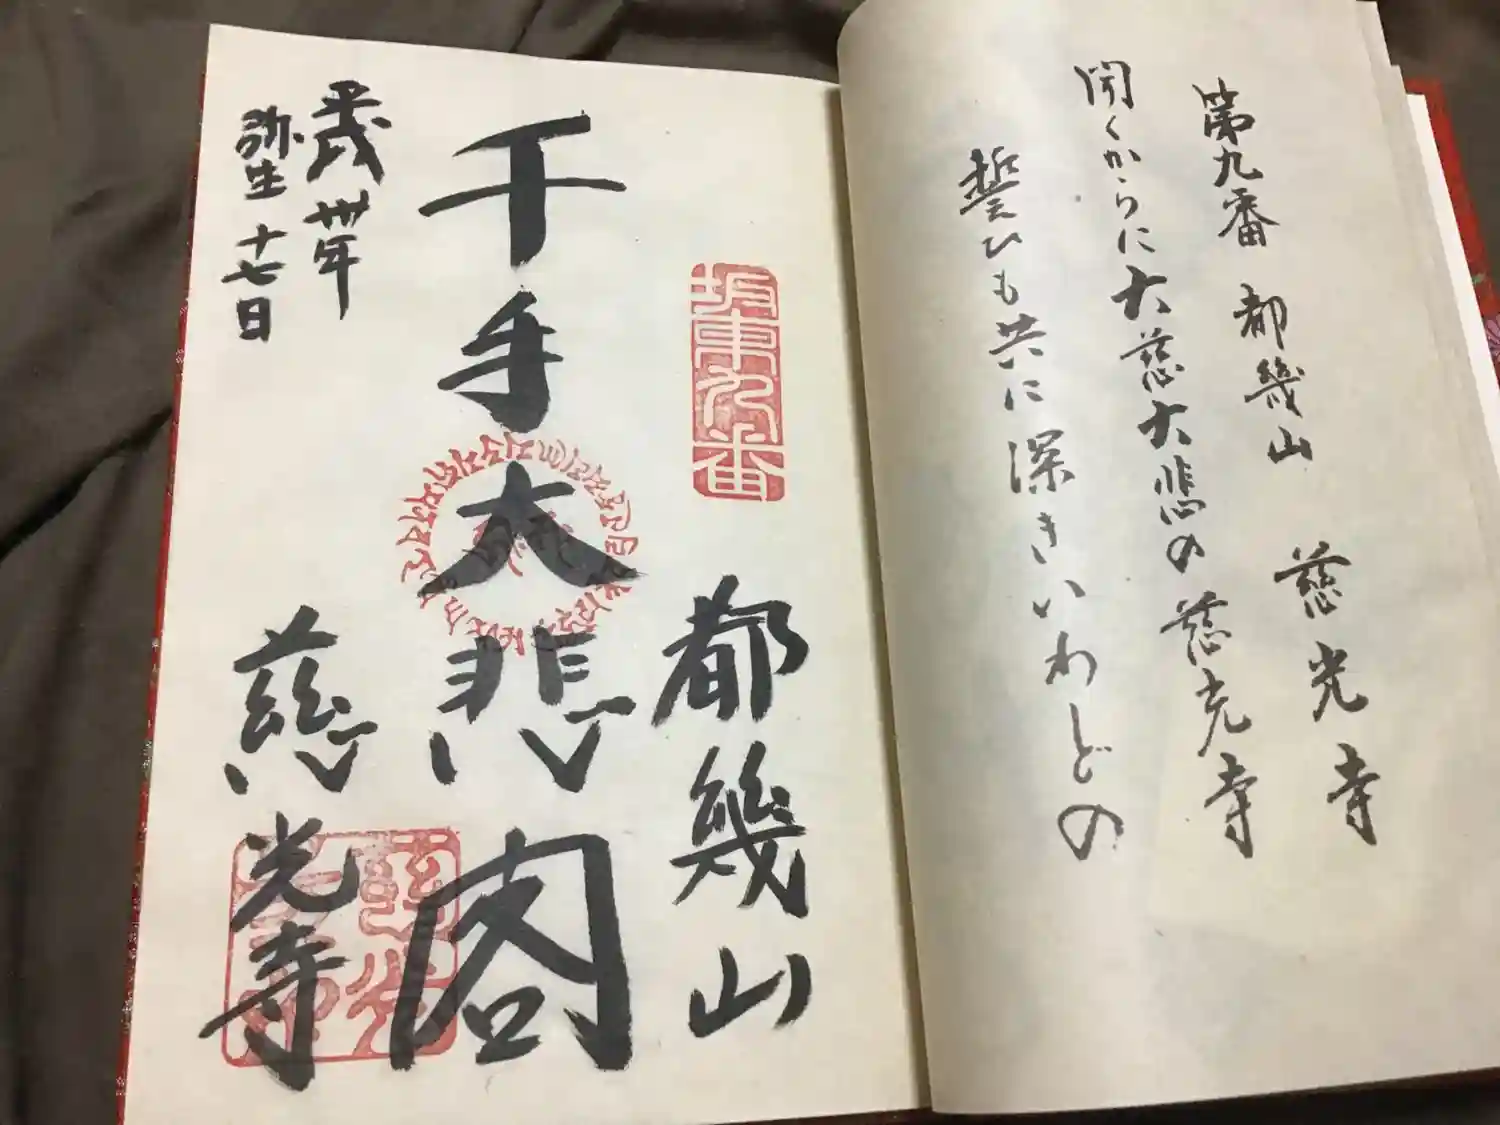 第九番 都幾山 慈光寺
聞くからに大慈大悲の慈光寺
誓ひも共に深きいわどの
坂東九番
都幾山
千手大悲閣
平成卅年
弥生十七日
慈光寺